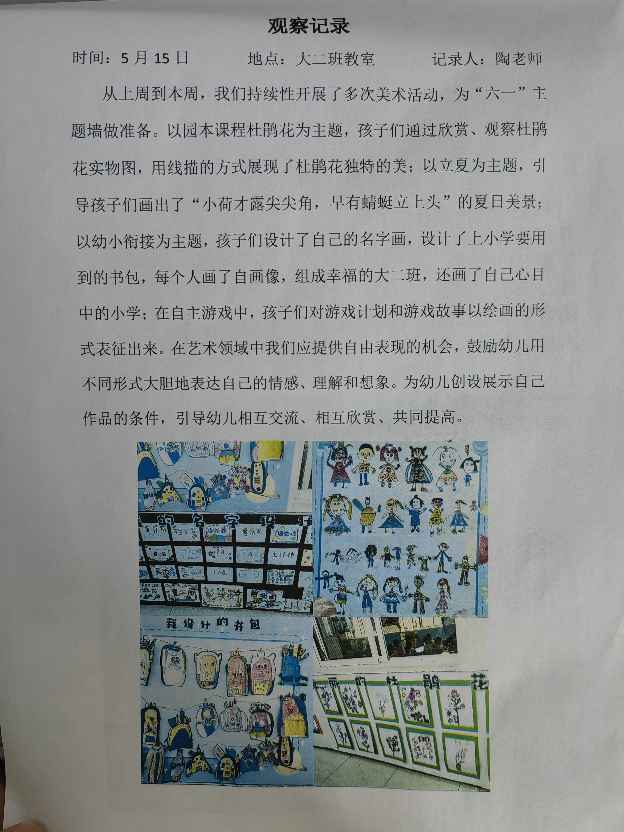 观察记录
时间：5月15日 地点：大二班教室 记录人：陶老师
从上周到本周，我们持续性开展了多次美术活动，为“六一”主
题墙做准备。以园本课程杜鹃花为主题，孩子们通过欣赏、观察杜鹃
花实物图，用线描的方式展现了杜鹃花独特的美；以立夏为主题，引
导孩子们画出了“小荷才露尖尖角，早有蜻蜓立上头”的夏日美景；
以幼小衔接为主题，孩子们设计了自己的名字画，设计了上小学要用
到的书包，每个人画了自画像，组成幸福的大二班，还画了自己心目
中的小学；在自主游戏中，孩子们对游戏计划和游戏故事以绘画的形
式表征出来。在艺术领域中我们应提供自由表现的机会，鼓励幼儿用
不同形式大胆地表达自己的情感、理解和想象。为幼儿创设展示自己
作品的条件，引导幼儿相互交流、相互欣赏、共同提高。
的名字
我设计的书包
的杜鹃花